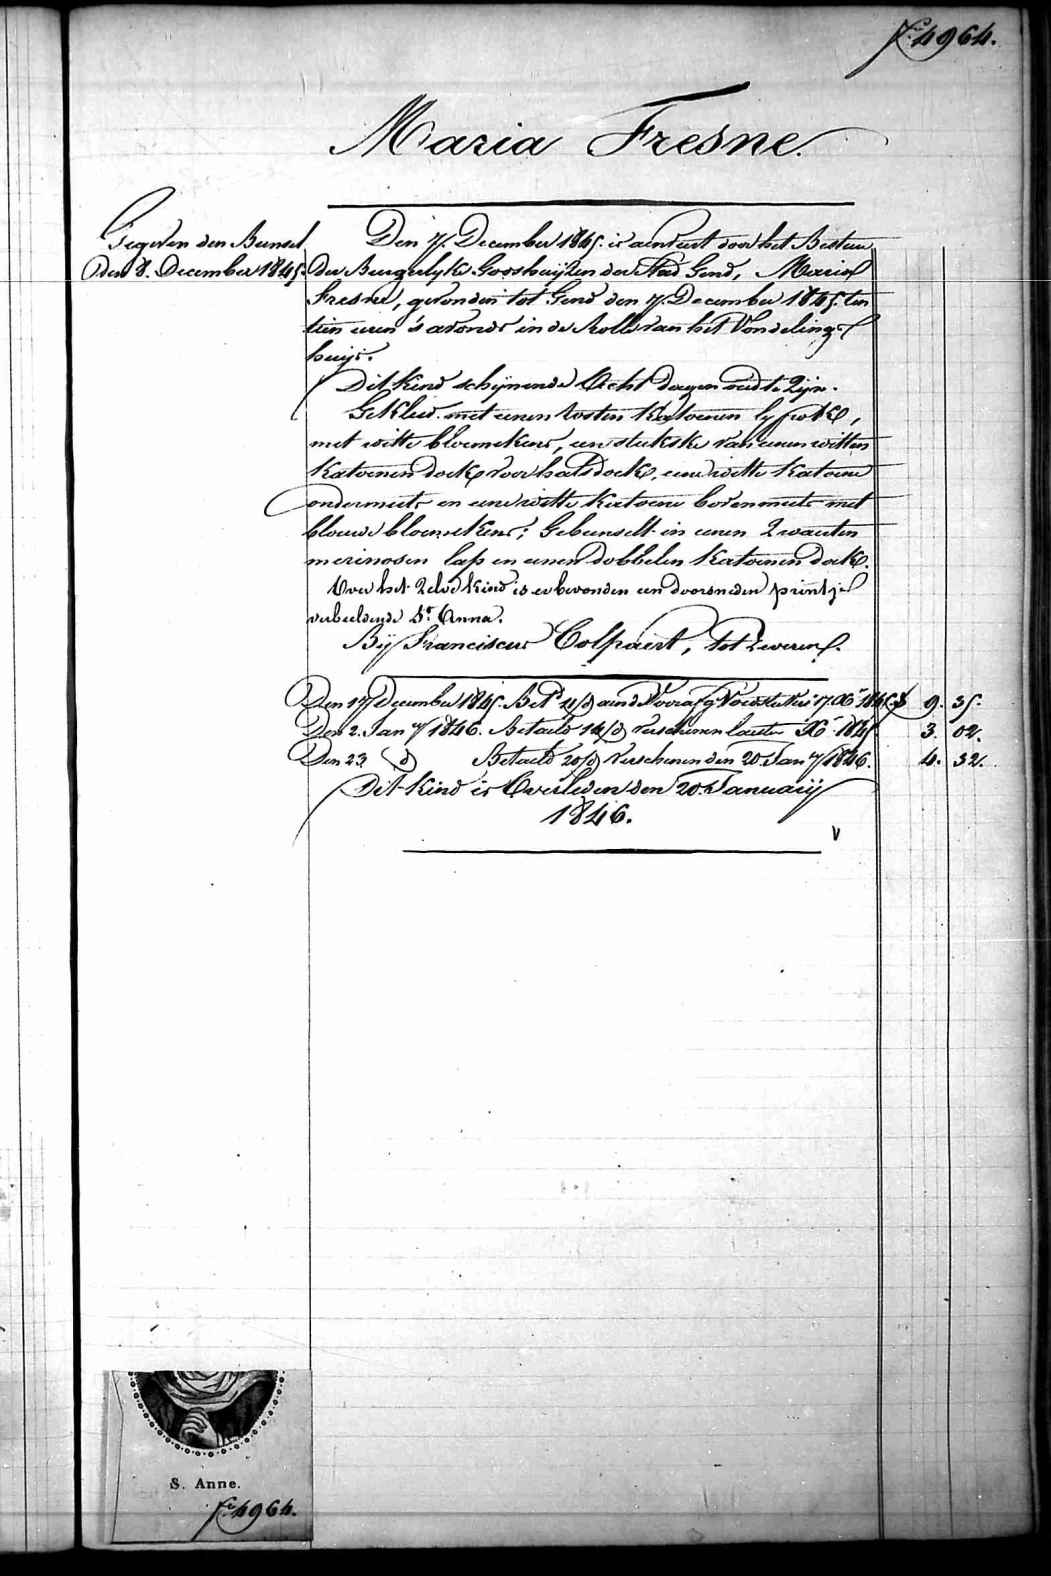 F. 4964.
Maria Fresne.
Gegeven den Bunsel
den 8. December 1845.
Den 7. December 1845. is aenveert door het Bestuer
der Burgerlyke Godshuijzen der Stad Gend, Maria
Fresne, gevonden tot Gend den 7. December 1845. ten
tien uren 's avonds in de Rolle van het Vondelings
huijs.
Dit kind schijnende Acht dagen oud te Zijn.
Gekleed met eenen rosten Katoenen lyfrok,
met witte bloemekens, een stukske van eenen witten
Katoenen doek voor halsdoek, eene witte Katoene
ondermuts en eene witte Katoene bovenmuts met
blauwe bloemekens; Gebunselt in eenen Zwarten
merinosen lap en eenen dobbelen Katoenen doek.
Over het Zelve kind is er bevonden een doorsneden printje
verbeeldende Ste. Anna.
Bij Franciscus Colpaert, tot Zeveren.
Den 17 December 1845. Bet. 9. 35.
Den 2. Jany 1846. Betaeld 14/d verschenen lasten Xb. 1845. 3. 02.
Den 23 d Betaeld 20/d Verschenen den 20. Jany 1846. 4. 32.
Dit kind is Overleden den 20. January
1846.
V
S. Anne.
F. 4964.